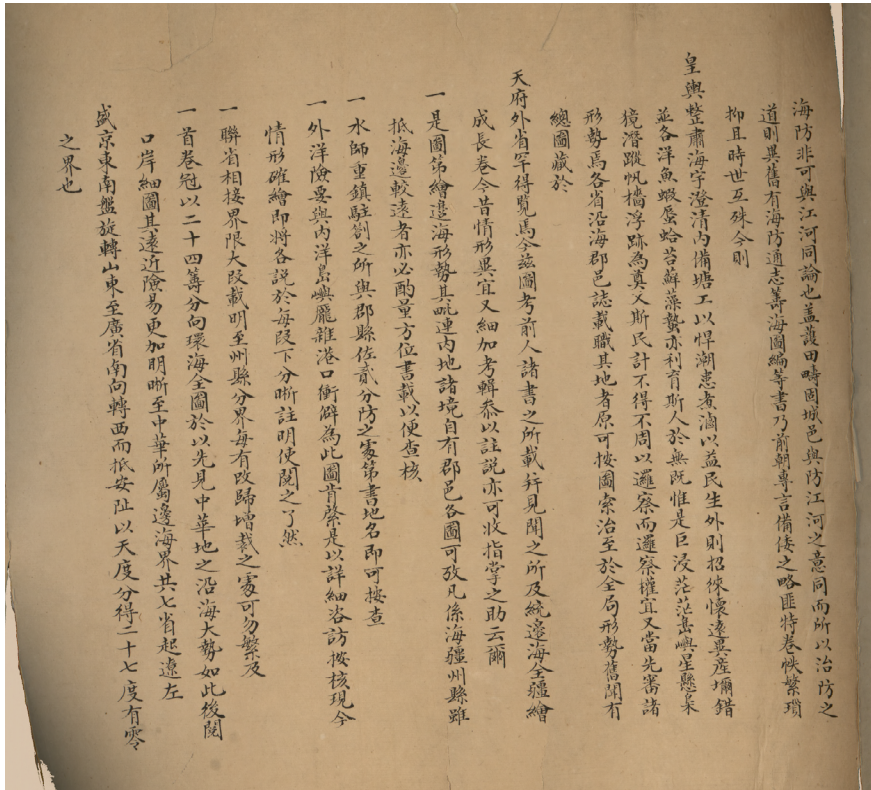 海防非可與江河同論也蓋護田疇固城邑與防江河之意同而所以治防之
道則異舊有海防通志籌海圖編等書乃前朝專言備倭之略匪特卷帙繁瑣
抑且時世互殊今則
皇輿整肅海宇澄清內備塘工以悍潮患煮滷以益民生外則招徠懷遠異産壩錯
並各洋魚蝦唇蛤苔蘇藻蟄亦利育斯人於無既惟是巨浸茫茫島嶼星懸枭
獍潛蹤帆檣浮跡為奠乂斯民計不得不周以邏察而邏察權宜又當先審諸
形勢焉各省沿海郡邑誌載職其地者原可按圖索治至於全局形勢舊聞有
總圖藏於
天府外省罕得覧焉今茲圖考前人諸書之所載行見聞之所及統邊海全疆繪
成長卷今昔情形異宜又細加考輯叅以註説亦可收指掌之助云爾
一是圖第繪邊海形勢其毗連內地諸境自有郡邑各圖可攷凡係海疆州縣雖
抵海邊較遠者亦必酌量方位書載以便查核
一水師重鎮駐劄之所與郡縣佐貳分防之䖏第書地名即可按查
一外洋險要與內洋島嶼厖雜港口衝僻為此圖肯綮是以詳細咨訪按核現今
情形確繪即將各説於每段下分晰註明使閲之了然
一聯省相接界限大段載明至州縣分界每有改歸增裁之䖏可勿繁及
一首卷冠以二十四籌分向環海全圖於以先見中華地之沿海大勢如此後閲
口岸細圖其遠近險易更加明晰至中華所屬邊海界共七省起遼左
盛京東南盤旋轉山東至廣省南向轉西而抵安阯以天度分得二十七度有零
之界也